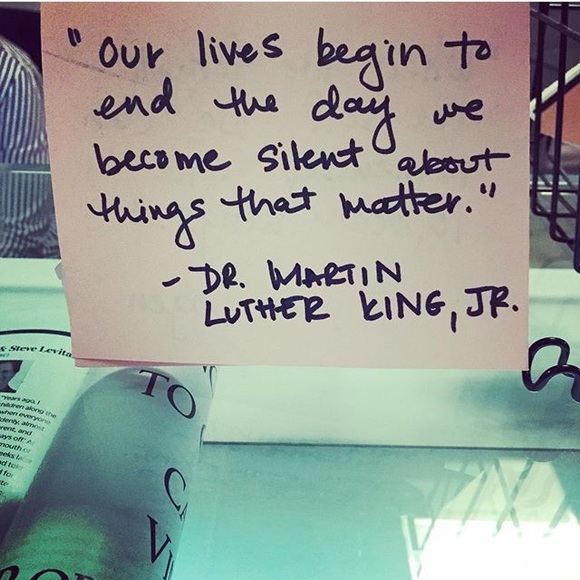 "Our lives begin to
end the day we
become silent about
things that matter."
- DR. MARTIN
LUTHER KING, JR.
& Steve Levita
"Years ago, I
children along the
when everyone
rent, and
TO